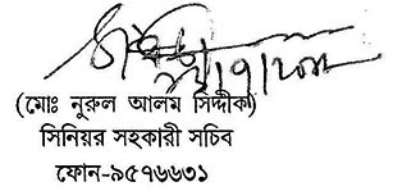 (মোঃ নুরুল আলম সিদ্দীকা)
সিনিয়র সহকারী সচিব
ফোন-৯৫৭৬৬৩১